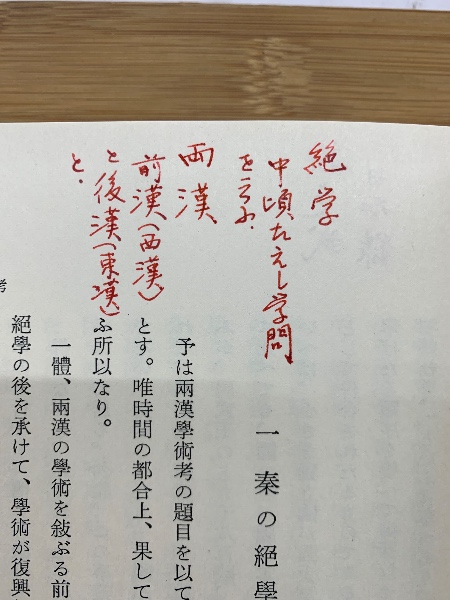 絶学
中頃たえし学問
を云ふ.
両漢
前漢(西漢)
と後漢(東漢)
と.
一 秦の絕學
予は兩漢學術考の題目を以て
とす。唯時間の都合上、果して
ふ所以なり。
一體、兩漢の學術を敍ぶる前
絕學の後を承けて、學術が復興
考